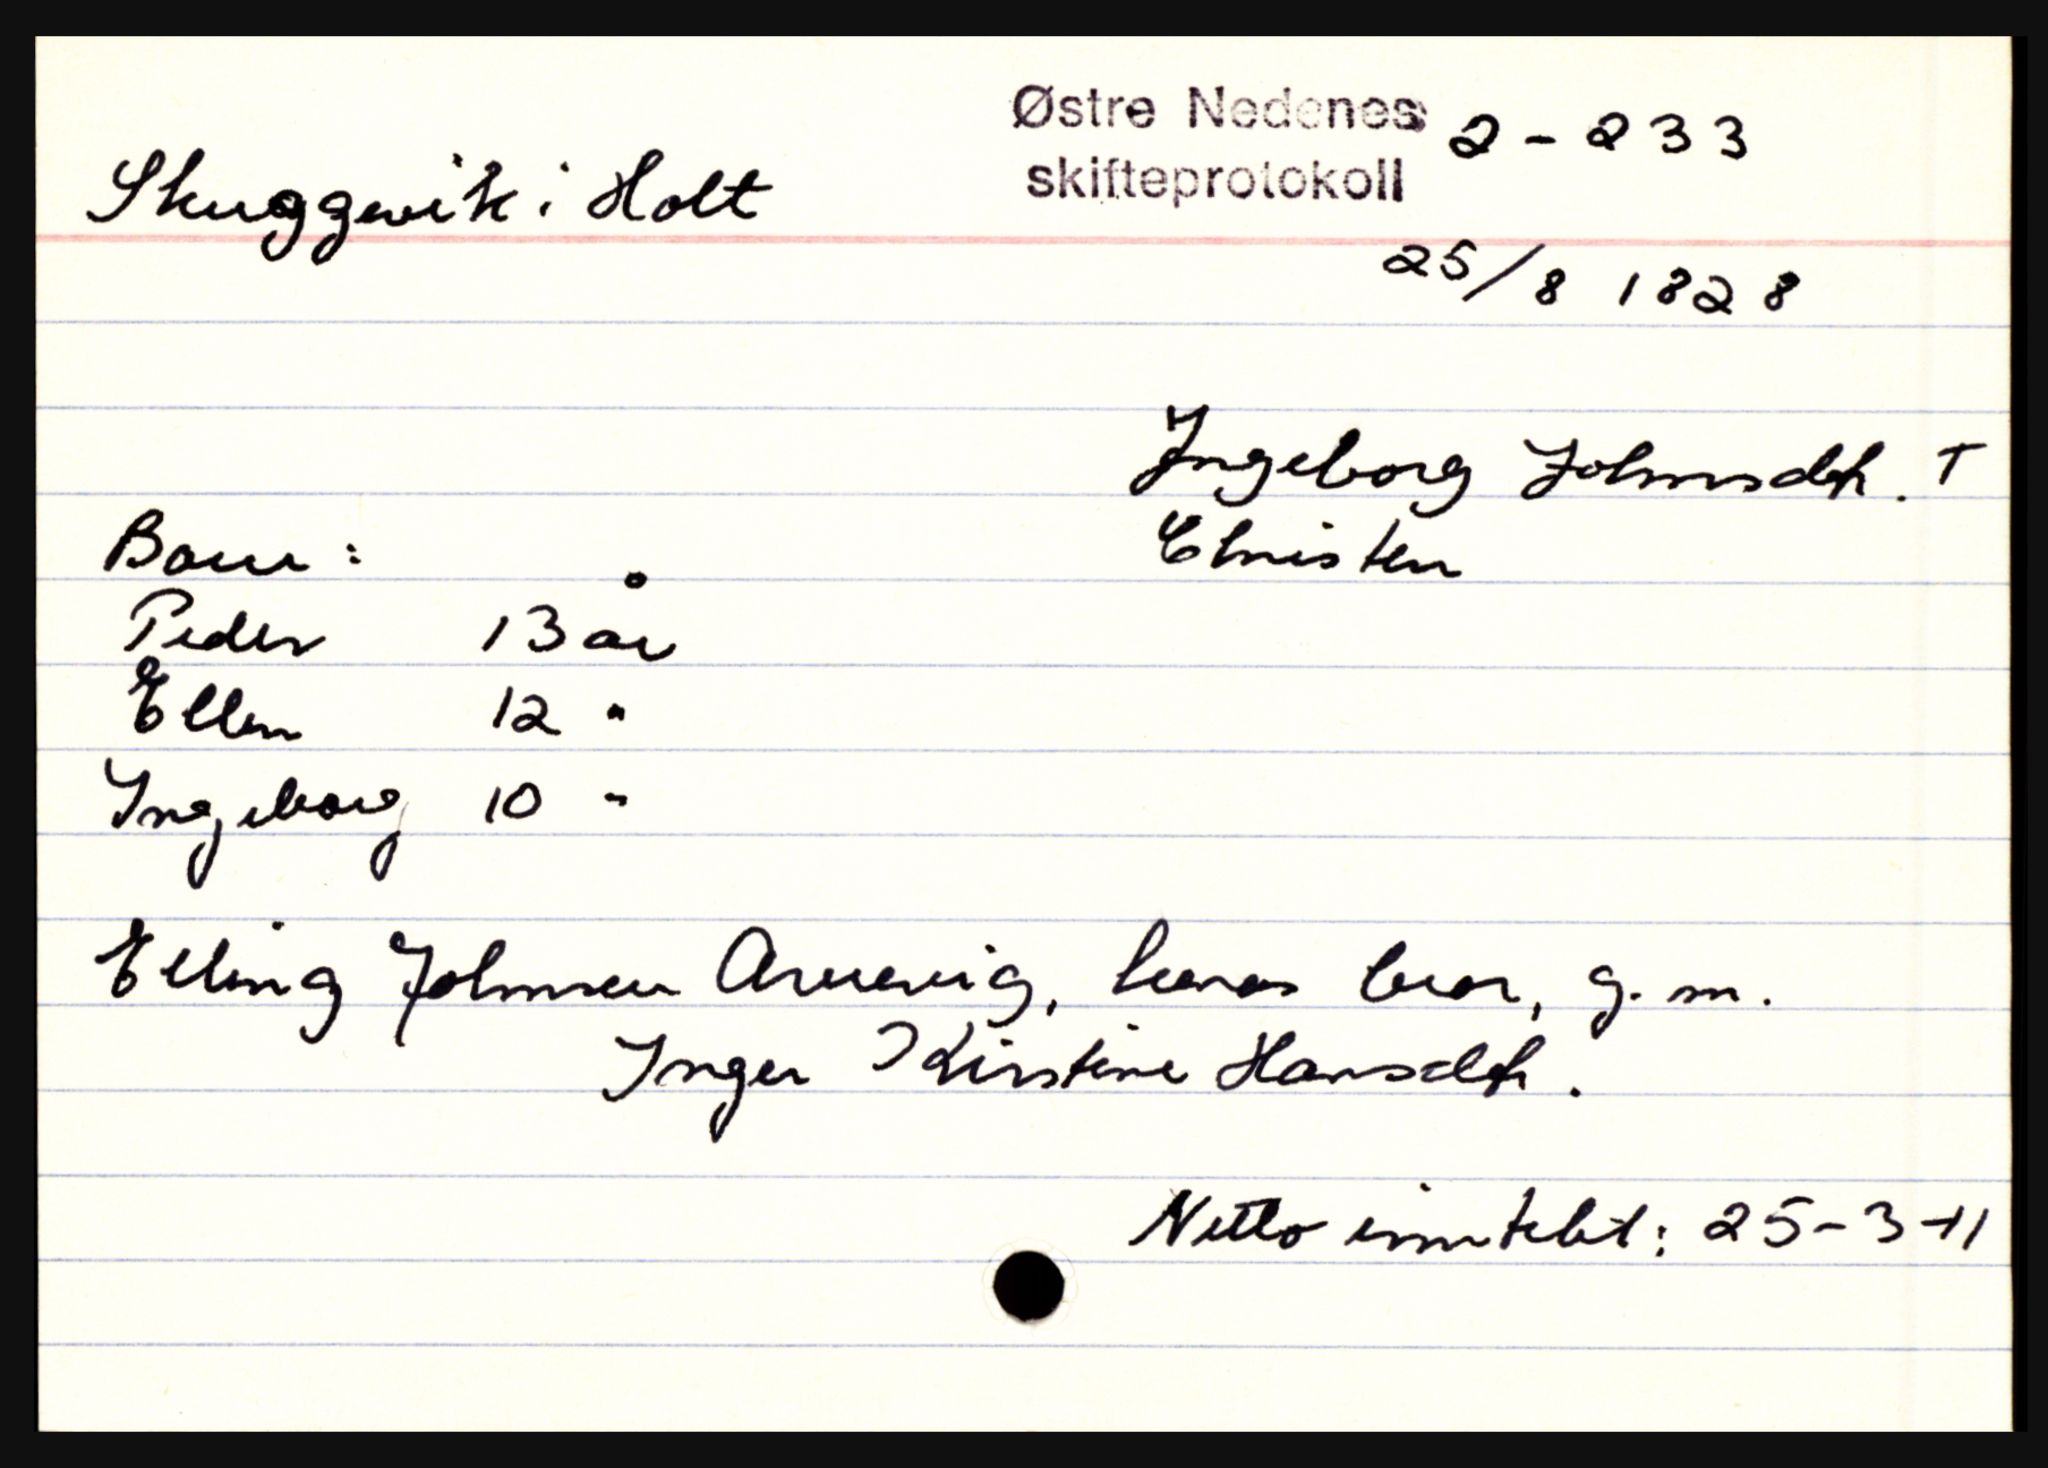 Østre Nedenes 2 - 233
skifteprotokoll
Skuggevik i Holt
25/8 1828
Ingeborg Johnsdtr. †
Christen
Barn:
Peder 13 år
Ellen 12 "
Ingeborg 10 "
Elling Johnsen Arnevig, hennes bror, g. m.
Inger Kirstine Hansdtr.
Netto inntekt: 25-3-11